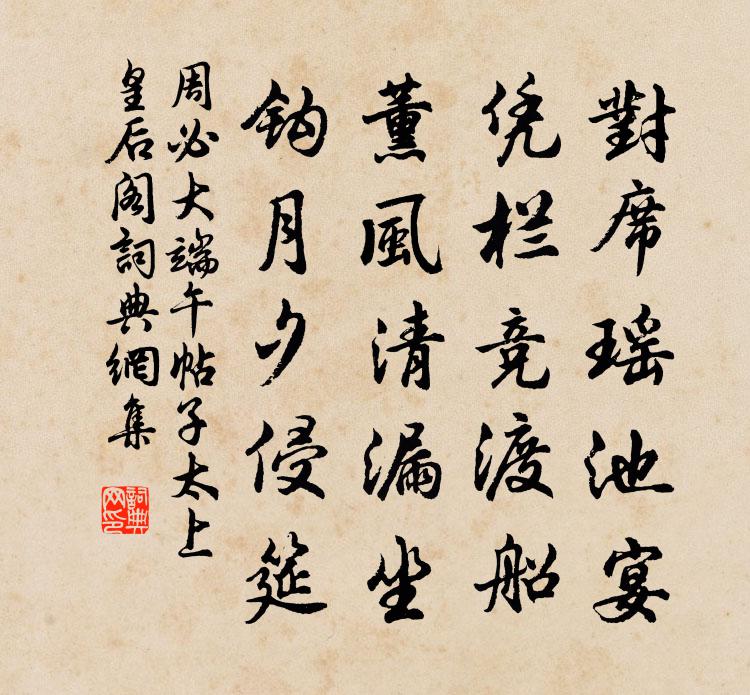 對席瑶池宴
凭栏竞渡船
薰風清漏坐
鈎月夕侵筵
周必大端午帖子太上
皇后阁詞典網集
詞典网印